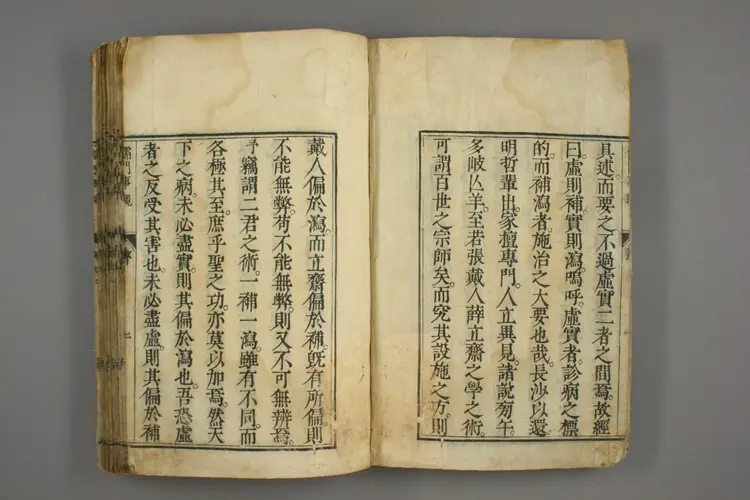 具述而要之不過虛實二者之間焉故經
曰虛則補實則瀉嗚呼虛實者診病之標
的而補瀉者施治之大要也哉長沙以還
明哲輩出家擅專門人立異見諸說匇午
多岐亾羊至若張戴人薛立齋之學之術
可謂百世之宗師矣而究其設施之方則
戴人偏於瀉而立齋偏於補既有所偏則
不能無弊苟不能無弊則又不可無辨焉
予竊謂二君之術一補一瀉雖有不同而
各極其至庶乎聖之功亦莫以加焉然天
下之病未必盡實則其偏於瀉也吾恐虛
者之反受其害也未必盡虛則其偏於補
儒門事親